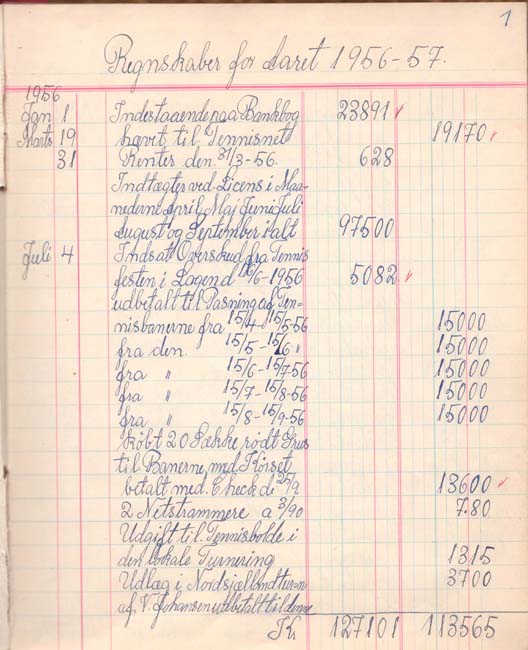 1
Regnskaber for Aaret 1956-57.
1956
Jan 1 Indestaaende paa Bankbog 23891
Marts 19 hævet til Tennisnet 19170
31 Renter den 31/3-56. 628
Indtægter ved. Licens i Maa-
nederne April, Maj Juni, Juli
August og September ialt 97500
Juli 4 Indsat Overskud fra Tennis
festen i Lagend 16/6-1956 5082
udbetalt til Pasning af Ten-
nisbanerne fra 15/4-15/5-56 15000
fra den. 15/5-15/6 " 15000
fra " 15/6-15/7-56 15000
fra " 15/7-15/8-56 15000
fra " 15/8-15/9-56 15000
købt 20 Sække rødt Grus
til Banerne, med Kørsel
betalt med. Check d. 25/9 13600
2 Netstrammere a 3/90 7.80
Udgift til. Tennisbolde i
den lokale Turnering 1315
Udlæg i Nordsjællandturn 3700
af. V. Johansen udbetalt til denne
Kr 127101 113565